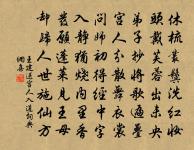 休梳叢鬢洗紅妝
頭戴芙蓉出未央
弟子抄將歌遍疊
宮人分散舞衣裳
問師初得經中字
入静猶燒内里香
發願蓬萊見王母
却歸人世施仙方
王建送宮人入道詞典
網喜